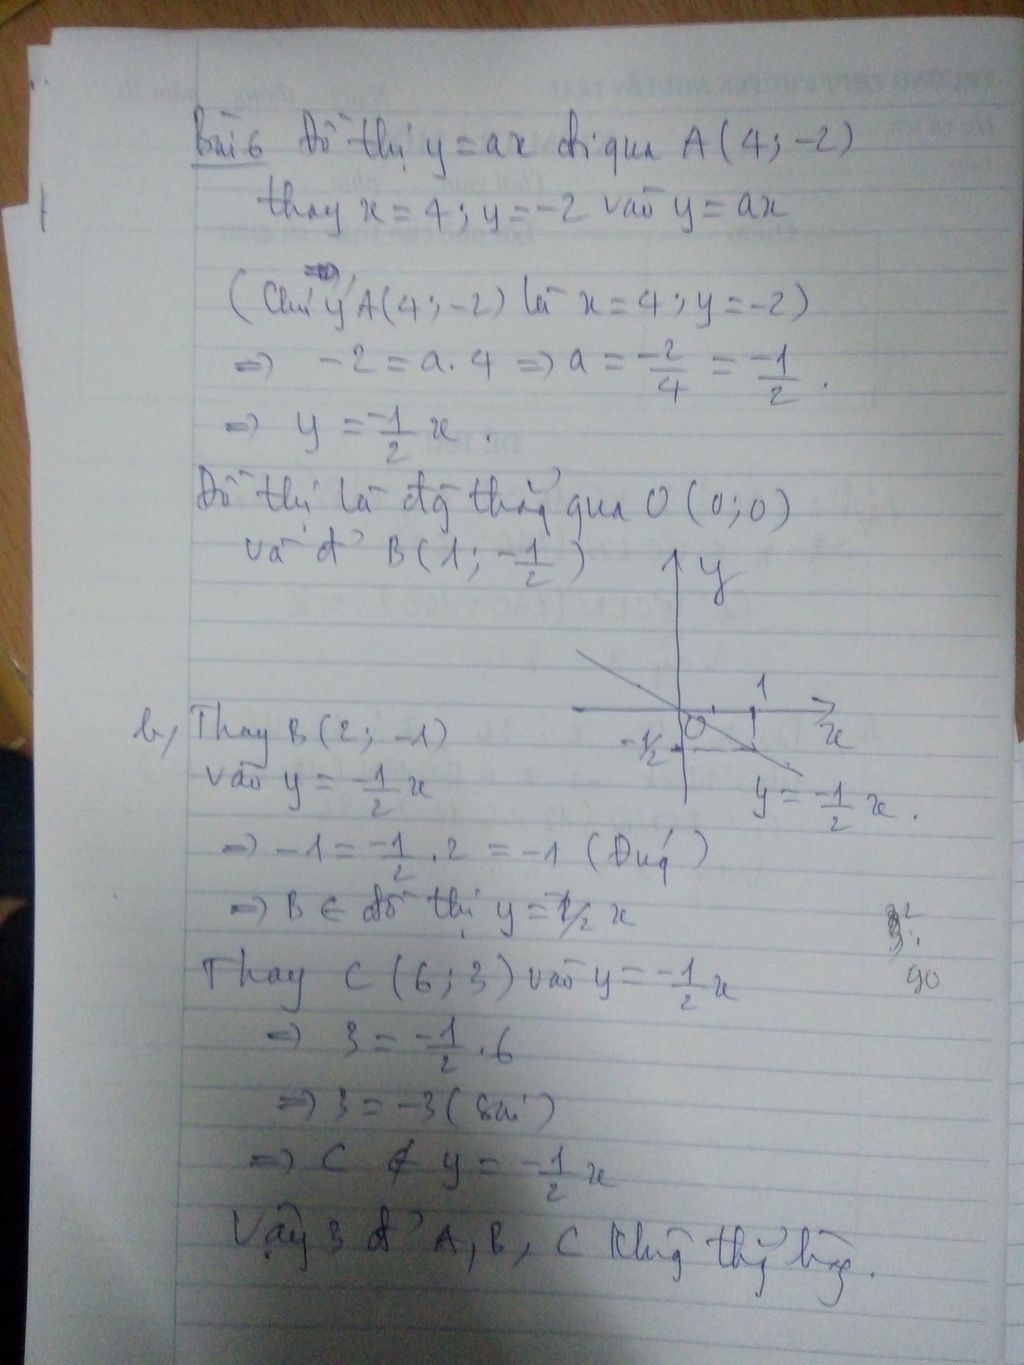 Bài 6 Đồ thị y = ax đi qua A(4; -2)
thay x = 4; y = -2 vào y = ax
(Chú ý A(4; -2) là x = 4; y = -2)
=> -2 = a.4 => a = -2/4 = -1/2.
=> y = -1/2 x.
Đồ thị là đg thẳg qua O(0;0)
và đ' B(1; -1/2)
y
1
O
x
-1/2
y = -1/2 x.
b, Thay B(2; -1)
vào y = -1/2 x
=> -1 = -1/2 . 2 = -1 (Đúg)
=> B ∈ đồ thị y = -1/2 x
Thay C(6; 3) vào y = -1/2 x
=> 3 = -1/2 . 6
=> 3 = -3 (Sai)
=> C ∉ y = -1/2 x
Vậy 3 đ' A, B, C khôg thẳg hàg.
90